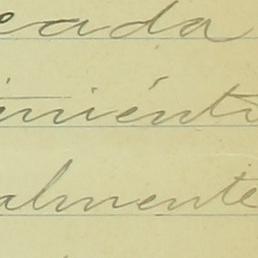 eada
imiént
almente